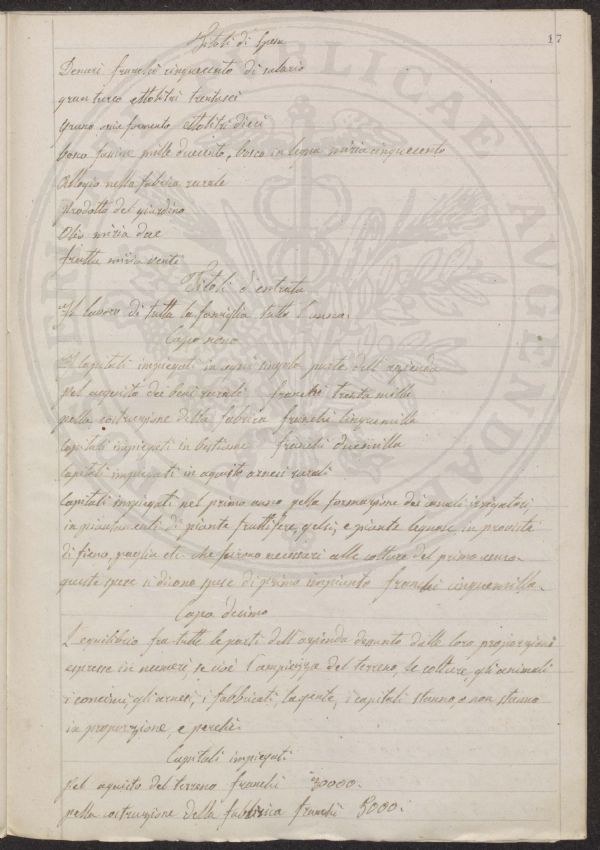 17
Titoli di spesa
Denari franchi cinquecento di salario
gran turco ettolitri trentasei
grano ossia formento ettolitri dieci
bosco fassine mille duecento, bosco in legna miria cinquecento
Alloggio nella fabrica rurale
Prodotto del giardino
Olio miria due
frutta miria venti
Titoli d'entrata
Il lavoro di tutta la famiglia tutto l'anno.
Capo nono
I Capitali impiegati in ogni singola parte dell'azienda
nel acquisto dei beni rurali franchi trenta mille
nella costruzione della fabrica franchi cinquemilla
Capitali impiegati in bestiame franchi duemilla
Capitali impiegati in aquisto arnesi rurali
Capitali impiegati nel primo anno nella formazione dei canali irrigatori,
in piantamenti di piante fruttifere, gelsi, e piante legnose, in provviste
di fieno, paglia etc. che furono necessari alle colture del primo anno.
queste spese si dicono spese di primo impianto franchi cinquemilla.
Capo decimo
L'equilibrio fra tutte le parti dell'azienda desunto dalle loro proporzioni
espresse in numeri, se cioè l'ampiezza del terreno, le colture, gli animali
i concimi, gli arnesi, i fabbricati, la gente, i capitali stanno, o non stanno
in proporzione, e perchè.
Capitali impiegati
nel aquisto del terreno franchi 30000.
nella costruzione della fabbrica franchi 5000.